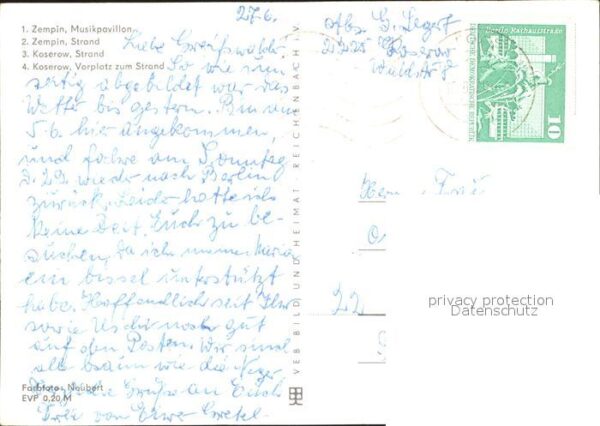 1. Zempin, Musikpavillon
2. Zempin, Strand
3. Koserow, Strand
4. Koserow, Vorplatz zum Strand
27.6.
Liebe Greifswalder
So wie um
seitig abgebildet war das
Wetter bis gestern. Bin am
5.6. hier angekommen,
und fahre am Sonntag
wieder nach Berlin
zurück. Leider hatte ich
keine Zeit, Euch zu be-
suchen, da ich meine Maria
ein bissel unterstützt
habe. Hoffentlich seit Ihr
sowie Uschi noch gut
auf den Posten. Wir sind
alle braun wie die Neger
Herzliche Grüße an Euch
von Eurer Gretel
Farbfoto: Neubert
EVP 0,20 M
VEB BILD UND HEIMAT REICHENBACH I. V.
Abs. G.
2225 Koserow
Waldstr. 8
Berlin Rathausstraße
DEUTSCHE DEMOKRATISCHE REPUBLIK
10
Frau
22
privacy protection
Datenschutz